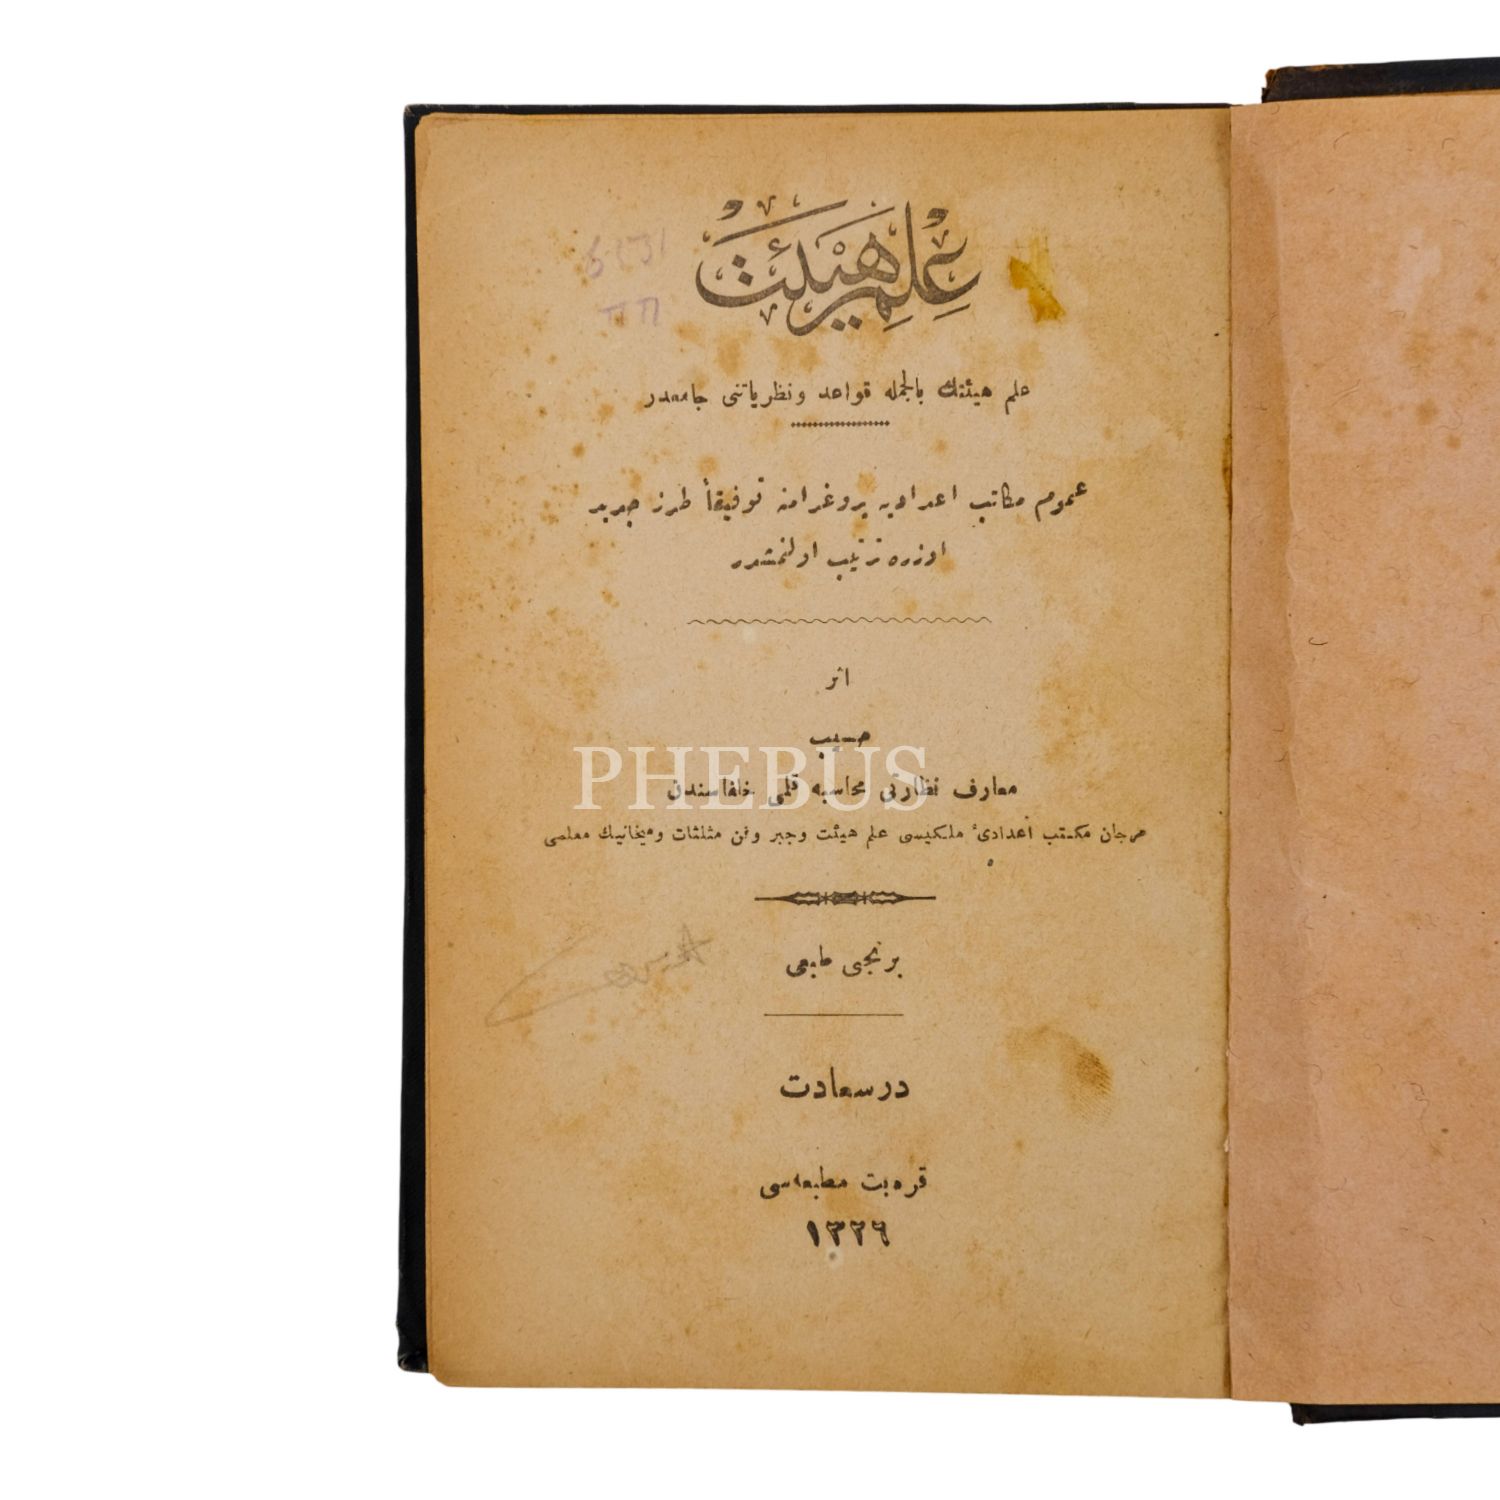 علم هيئت
علم هيئتك بالجمله قواعد و نظرياتنى جامعدر
عموم مكاتب اعداديه پروغرامنه توفيقاً طرز جديد
اوزره ترتيب اولنمشدر
اثر
حسيب
PHEBUS
معارف نظارتى محاسبه قلمى خلفاسندن
مرجان مكتب اعدادئ ملكيسى علم هيئت وجبر وفن مثلثات وميخانيك معلمى
برنجى طبعى
درسعادت
قره بت مطبعه سى
١٣٢٦